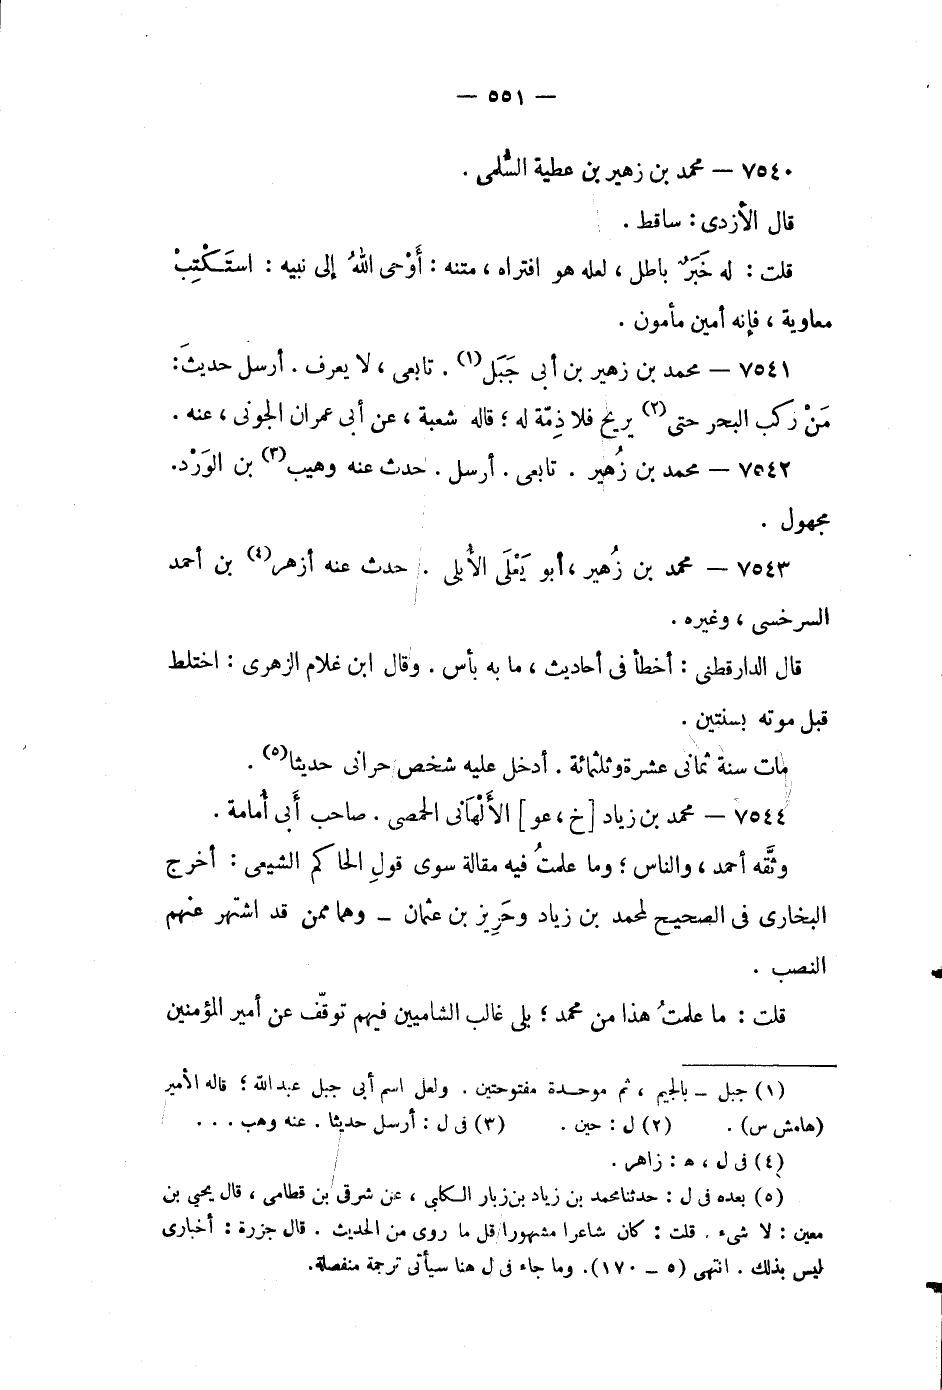 — ٥٥١ —
٧٥٤٠ — محمد بن زهير بن عطية السُّلمى .
قال الأزدى : ساقط .
قلت : له خَبَرٌ باطل ، لعله هو افتراه ، متنه : أَوْحى اللهُ إلى نبيه : استَكْتِبْ
معاوية ، فإنه أمين مأمون .
٧٥٤١ — محمد بن زهير بن أبى جَبَل(١) . تابعى ، لا يعرف . أرسل حديثَ :
مَنْ ركب البحر حتى(٢) يريح فلا ذِمّة له ؛ قاله شعبة ، عن أبى عمران الجونى ، عنه .
٧٥٤٢ — محمد بن زُهير . تابعى . أرسل . حدث عنه وهيب(٣) بن الوَرْد.
مجهول .
٧٥٤٣ — محمد بن زُهير ، أبو يَعْلَى الأُبلى . حدث عنه أزهر(٤) بن أحمد
السرخسى ، وغيره .
قال الدارقطنى : أخطأ فى أحاديث ، ما به بأس . وقال ابن غلام الزهرى : اختلط
قبل موته بسنتين .
مات سنة ثمانى عشرة وثلثمائة . أدخل عليه شخص حرانى حديثا(٥) .
٧٥٤٤ — محمد بن زياد [خ ، عو] الأَلْهَانى الحمصى . صاحب أَبى أُمامة .
وثَّقه أحمد ، والناس ؛ وما علمتُ فيه مقالة سوى قولِ الحاكم الشيعى : أخرج
البخارى فى الصحيح لمحمد بن زياد وحَرِيز بن عثمان – وهما ممن قد اشتهر عنهم
النصب .
قلت : ما علمتُ هذا من محمد ؛ بلى غالب الشاميين فيهم توقّف عن أمير المؤمنين
(١) جبل – بالجيم ، ثم موحدة مفتوحتين . ولعل اسم أبى جبل عبد الله ؛ قاله الأمير
(هامش س) . (٢) ل : حين . (٣) فى ل : أرسل حديثا . عنه وهب . . .
(٤) فى ل ، ه : زاهر .
(٥) بعده فى ل : حدثنا محمد بن زياد بن زبار الكلبى ، عن شرقى بن قطامى ، قال يحيى بن
معين : لا شىء . قلت : كان شاعرا مشهورا قل ما روى من الحديث . قال جزرة : أخبارى
ليس بذلك . انتهى (٥ – ١٧٠). وما جاء فى ل هنا سيأتى ترجمة منفصلة.